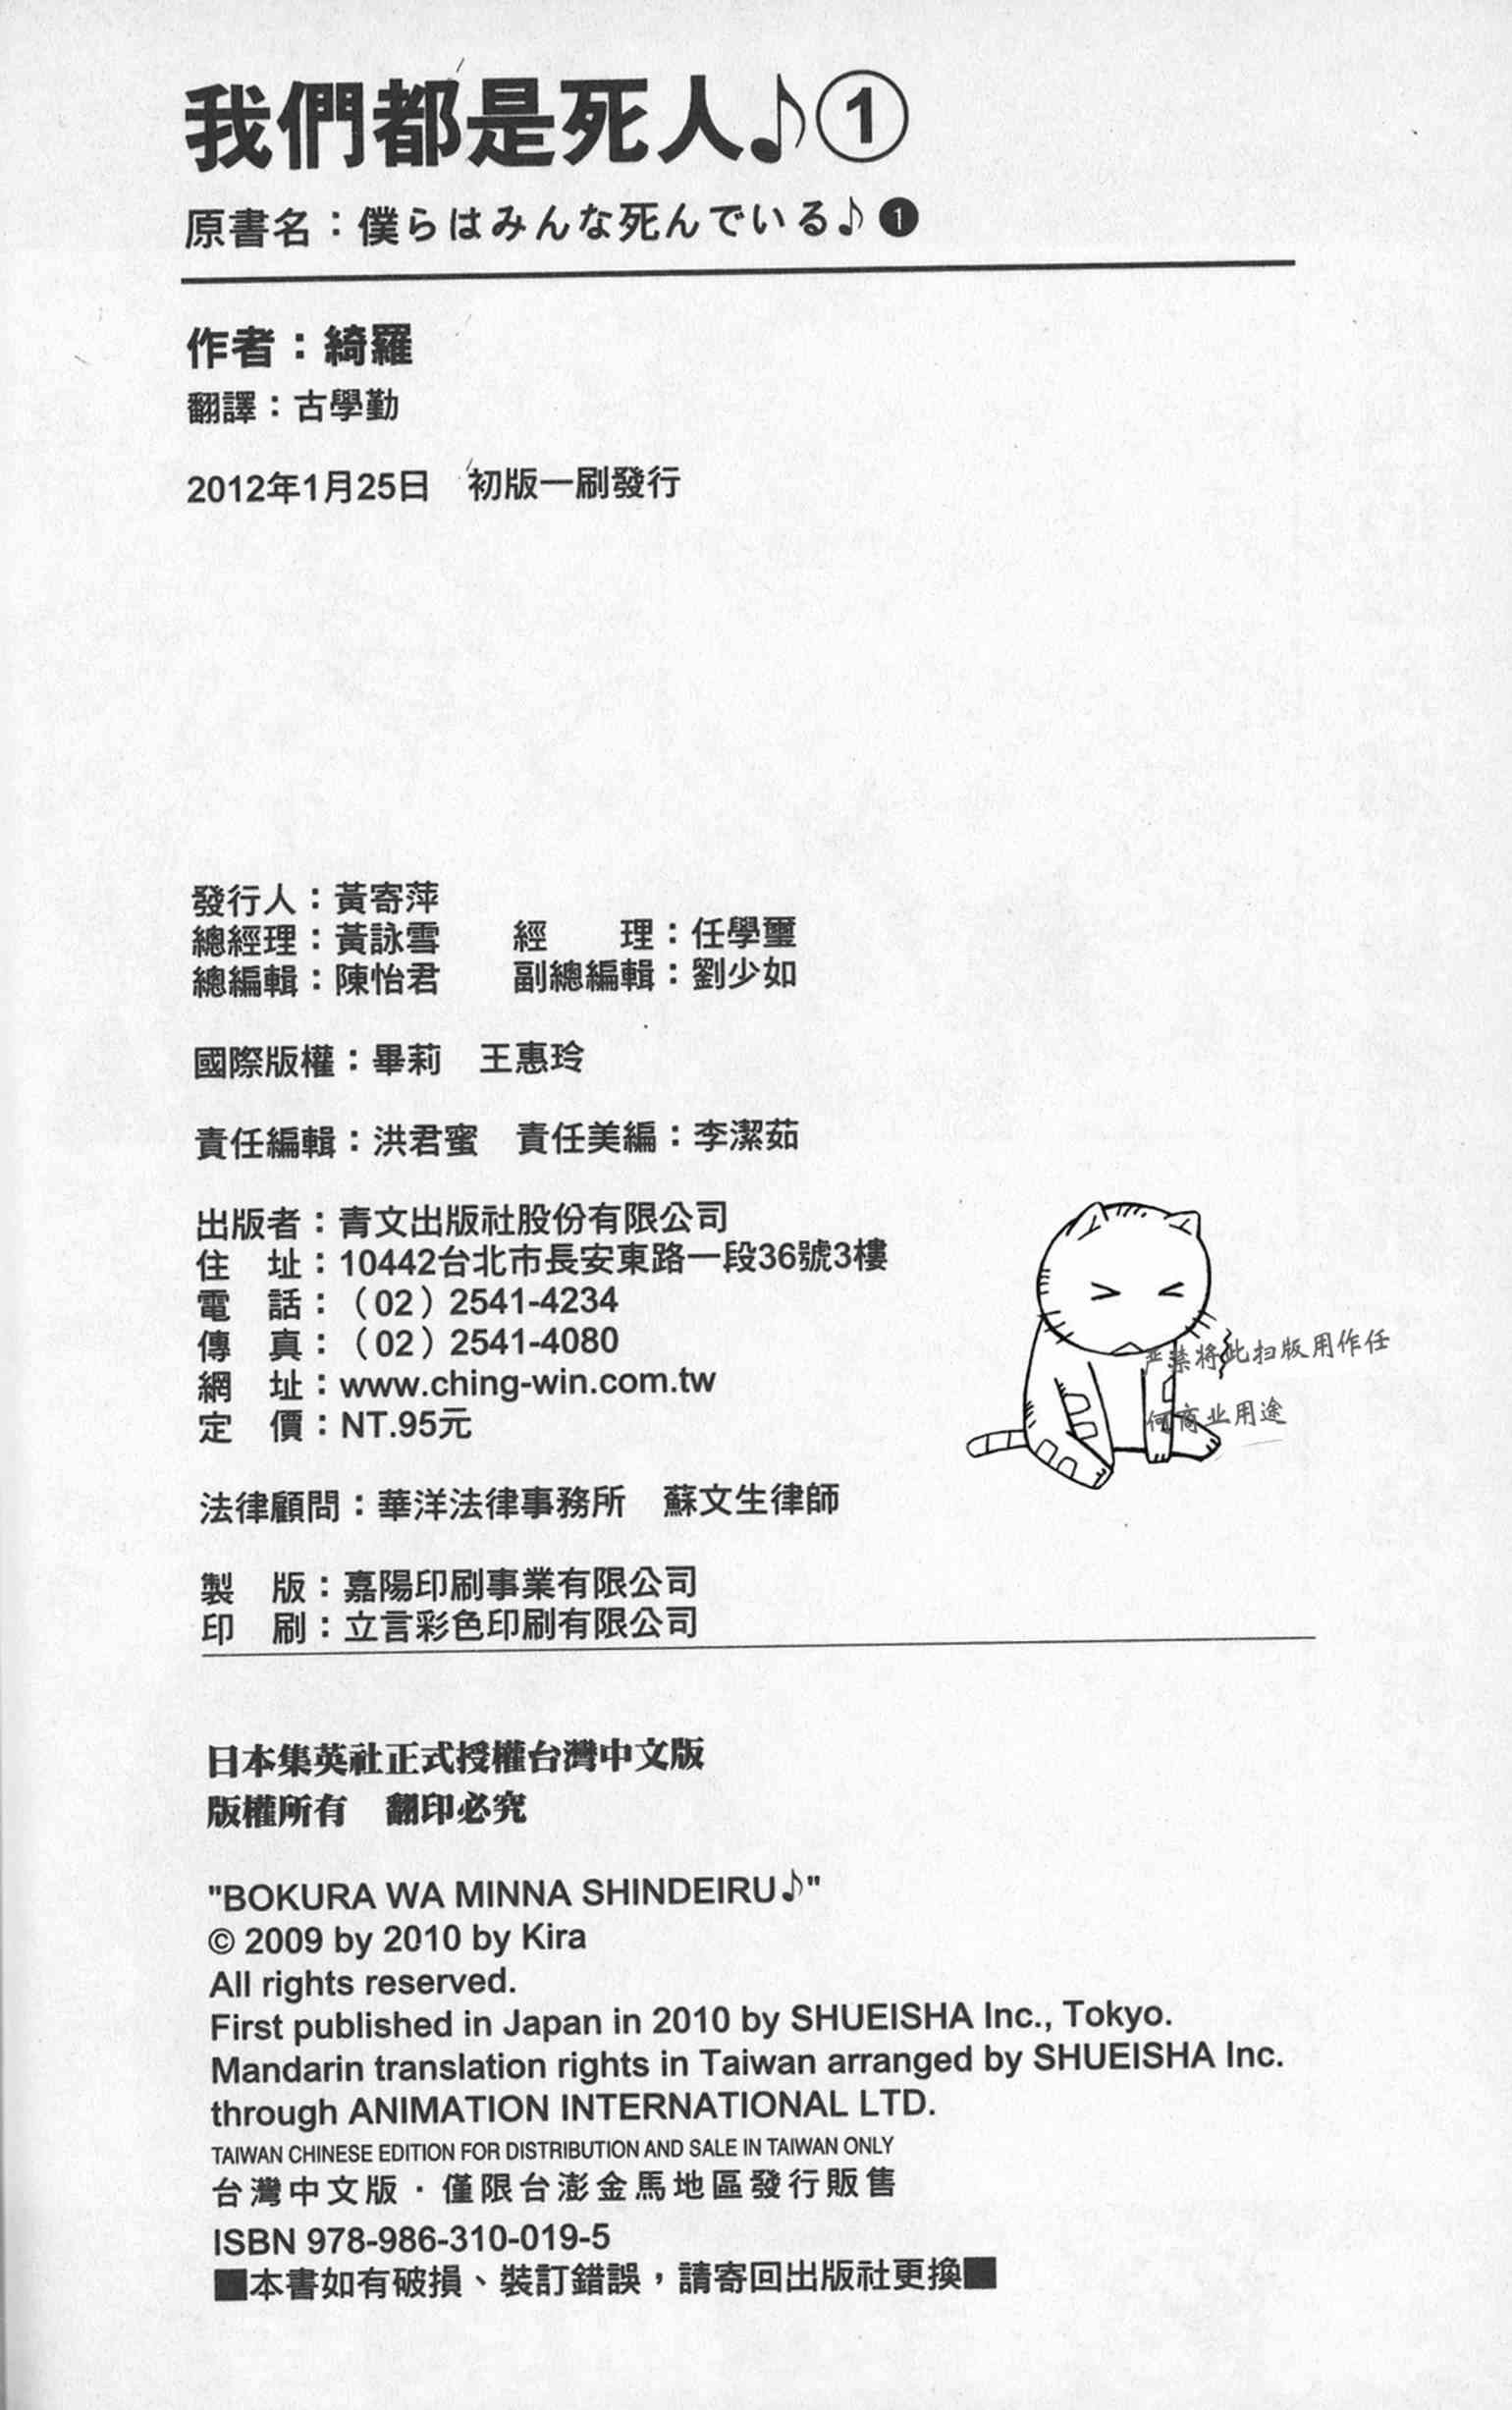 我們都是死人♪①
原書名：僕らはみんな死んでいる♪❶
作者：綺羅
翻譯：古學勤
2012年1月25日　初版一刷發行
發行人：黃寄萍
總經理：黃詠雪　　經　　理：任學璽
總編輯：陳怡君　　副總編輯：劉少如
國際版權：畢莉　王惠玲
責任編輯：洪君蜜　責任美編：李潔茹
出版者：青文出版社股份有限公司
住　址：10442台北市長安東路一段36號3樓
電　話：（02）2541-4234
傳　真：（02）2541-4080
網　址：www.ching-win.com.tw
定　價：NT.95元
严禁将此扫版用作任
何商业用途
法律顧問：華洋法律事務所　蘇文生律師
製　版：嘉陽印刷事業有限公司
印　刷：立言彩色印刷有限公司
日本集英社正式授權台灣中文版
版權所有　翻印必究
"BOKURA WA MINNA SHINDEIRU♪"
© 2009 by 2010 by Kira
All rights reserved.
First published in Japan in 2010 by SHUEISHA Inc., Tokyo.
Mandarin translation rights in Taiwan arranged by SHUEISHA Inc.
through ANIMATION INTERNATIONAL LTD.
TAIWAN CHINESE EDITION FOR DISTRIBUTION AND SALE IN TAIWAN ONLY
台灣中文版‧僅限台澎金馬地區發行販售
ISBN 978-986-310-019-5
■本書如有破損、裝訂錯誤，請寄回出版社更換■